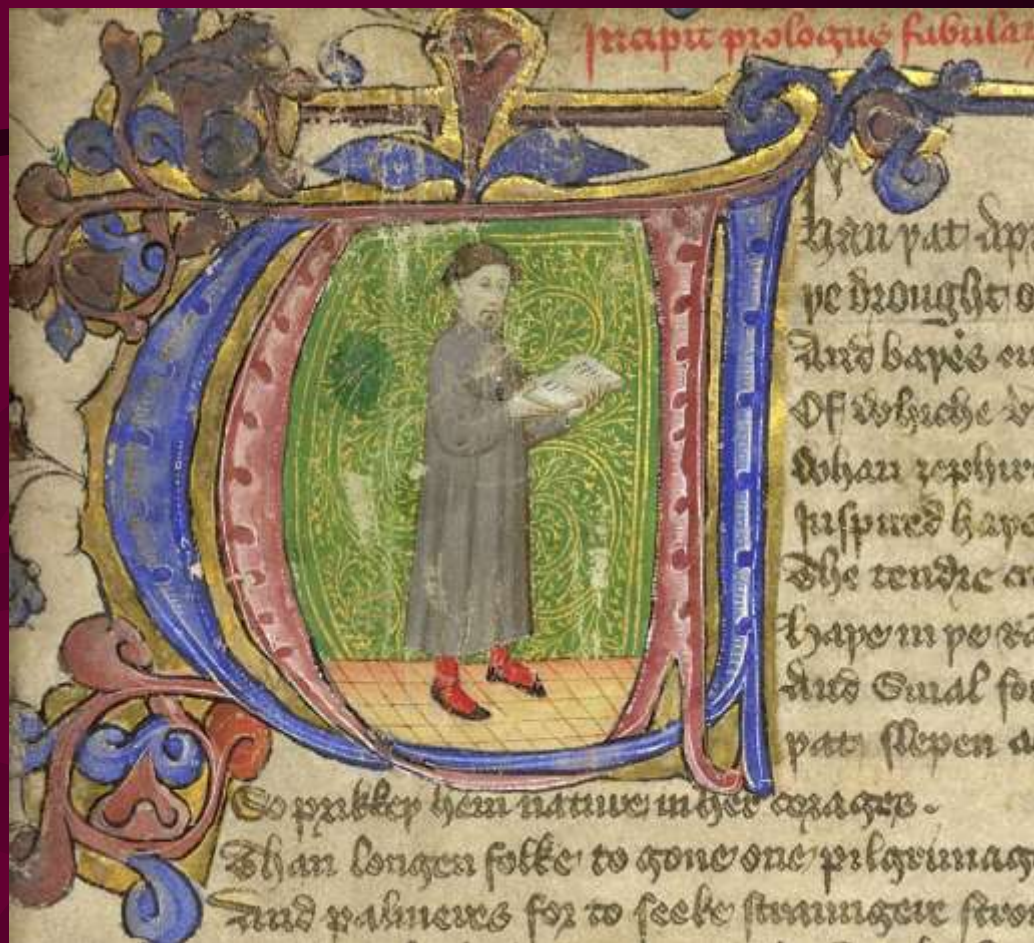 Incipit prologus fabular
Whan þat Ap
þe drought o
And baþes eu
Of whiche v
Whan zephiru
Inspired haþe
The tendre cr
haþe in þe R
And Smal fo
þat slepen a
So prikkeþ hem nature in her corages .
Than longen folke to gone one pilgrimag
And palmeres for to seeke straungere stro